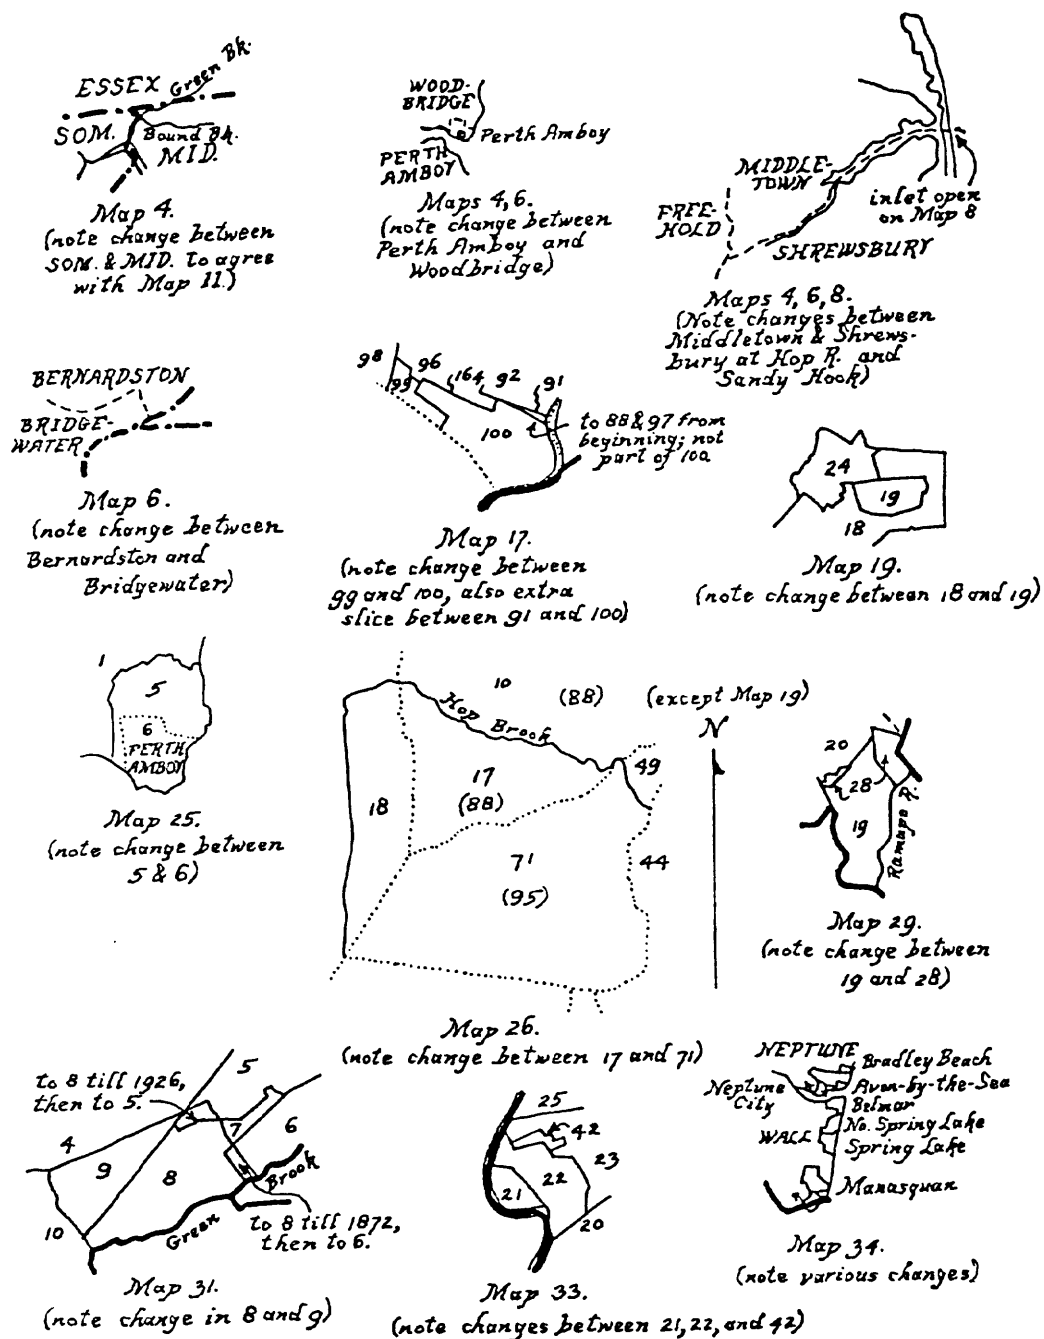 ESSEX
Green Bk.
SOM.
Bound Bk.
MID.
Map 4.
(note change between
SOM. & MID. to agree
with Map 11.)
WOOD-
BRIDGE
Perth Amboy
PERTH
AMBOY
Maps 4, 6.
(note change between
Perth Amboy and
Woodbridge)
MIDDLE-
TOWN
FREE-
HOLD
SHREWSBURY
inlet open
on Map 8
Maps 4, 6, 8.
(Note changes between
Middletown & Shrews-
bury at Hop R. and
Sandy Hook)
BERNARDSTON
BRIDGE-
WATER
Map 6.
(note change between
Bernardston and
Bridgewater)
98
96
99
164
92
91
100
to 88 & 97 from
beginning; not
part of 100
Map 17.
(note change between
99 and 100, also extra
slice between 91 and 100)
24
19
18
Map 19.
(note change between 18 and 19)
1
5
6
PERTH
AMBOY
Map 25.
(note change between
5 & 6)
10
(88)
(except Map 19)
Hop Brook
N
49
17
(88)
18
71
(95)
44
Map 26.
(note change between 17 and 71)
20
28
19
Ramapo R.
Map 29.
(note change between
19 and 28)
to 8 till 1926,
then to 5.
5
7
6
4
9
8
10
Green Brook
to 8 till 1872,
then to 6.
Map 31.
(note change in 8 and 9)
25
42
23
22
21
20
Map 33.
(note changes between 21, 22, and 42)
NEPTUNE
Bradley Beach
Neptune
City
Avon-by-the-Sea
Belmar
No. Spring Lake
WALL
Spring Lake
Manasquan
Map 34.
(note various changes)